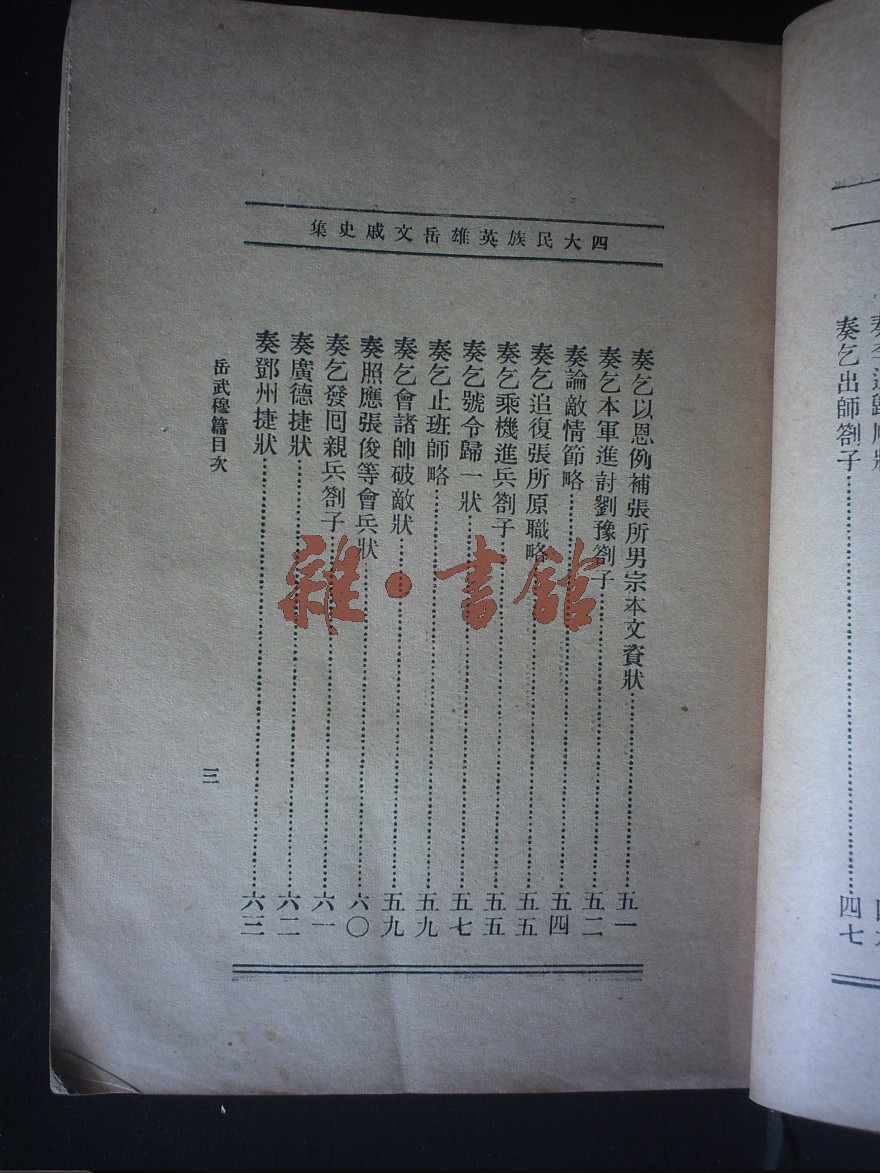 奏乞出師劄子……四七
四大民族英雄岳文戚史集
奏乞以恩例補張所男宗本文資狀……五一
奏乞本軍進討劉豫劄子……五二
奏論敵情節略……五四
奏乞追復張所原職略……五五
奏乞乘機進兵劄子……五五
奏乞號令歸一狀……五七
奏乞止班師略……五九
奏乞會諸帥破敵狀……五九
奏照應張俊等會兵狀……六〇
奏乞發囘親兵劄子……六一
奏廣德捷狀……六二
奏鄧州捷狀……六三
岳武穆篇目次
三
雜·書館